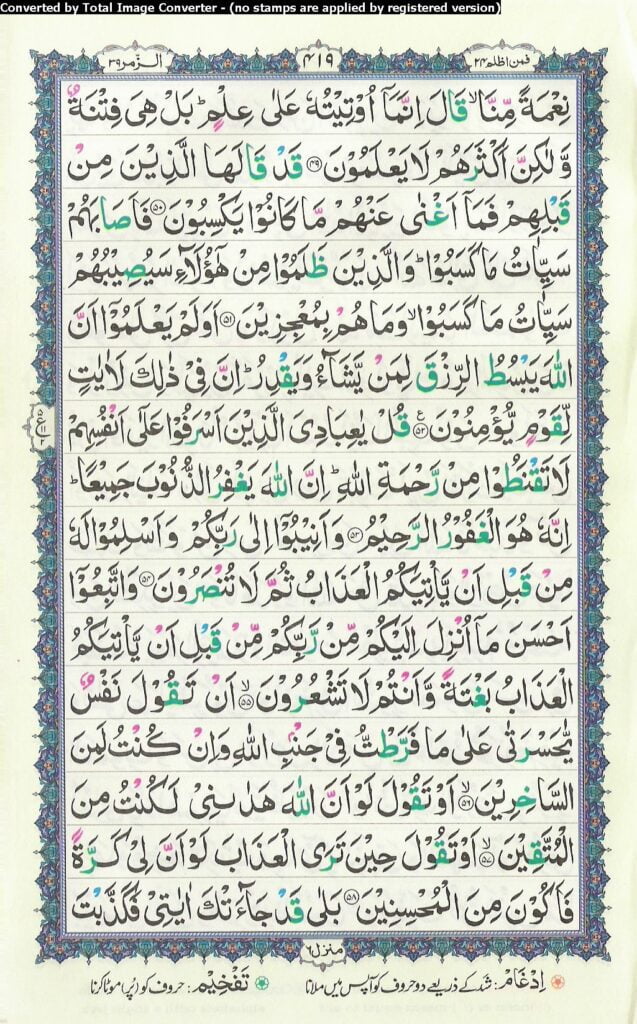 Converted by Total Image Converter - (no stamps are applied by registered version)
فمن اظلم ۲۴
۴۱۹
الزّمر ۳۹
نِعْمَةً مِّنَّا ۙ قَالَ اِنَّمَاۤ اُوْتِيْتُهٗ عَلٰى عِلْمٍ ؕ بَلْ هِىَ فِتْنَةٌ
وَّلٰكِنَّ اَكْثَرَهُمْ لَا يَعْلَمُوْنَ ۝۴۹ قَدْ قَالَهَا الَّذِيْنَ مِنْ
قَبْلِهِمْ فَمَاۤ اَغْنٰى عَنْهُمْ مَّا كَانُوْا يَكْسِبُوْنَ ۝۵۰ فَاَصَابَهُمْ
سَيِّاٰتُ مَا كَسَبُوْا ؕ وَالَّذِيْنَ ظَلَمُوْا مِنْ هٰۤؤُلَآءِ سَيُصِيْبُهُمْ
سَيِّاٰتُ مَا كَسَبُوْا ۙ وَمَا هُمْ بِمُعْجِزِيْنَ ۝۵۱ اَوَلَمْ يَعْلَمُوْۤا اَنَّ
اللّٰهَ يَبْسُطُ الرِّزْقَ لِمَنْ يَّشَآءُ وَيَقْدِرُ ؕ اِنَّ فِىْ ذٰلِكَ لَاٰيٰتٍ
لِّقَوْمٍ يُّؤْمِنُوْنَ ۝۵۲ ع قُلْ يٰعِبَادِىَ الَّذِيْنَ اَسْرَفُوْا عَلٰۤى اَنْفُسِهِمْ
لَا تَقْنَطُوْا مِنْ رَّحْمَةِ اللّٰهِ ؕ اِنَّ اللّٰهَ يَغْفِرُ الذُّنُوْبَ جَمِيْعًا ؕ
اِنَّهٗ هُوَ الْغَفُوْرُ الرَّحِيْمُ ۝۵۳ وَاَنِيْبُوْۤا اِلٰى رَبِّكُمْ وَاَسْلِمُوْا لَهٗ
مِنْ قَبْلِ اَنْ يَّاْتِيَكُمُ الْعَذَابُ ثُمَّ لَا تُنْصَرُوْنَ ۝۵۴ وَاتَّبِعُوْۤا
اَحْسَنَ مَاۤ اُنْزِلَ اِلَيْكُمْ مِّنْ رَّبِّكُمْ مِّنْ قَبْلِ اَنْ يَّاْتِيَكُمُ
الْعَذَابُ بَغْتَةً وَّاَنْتُمْ لَا تَشْعُرُوْنَ ۙ۝۵۵ اَنْ تَقُوْلَ نَفْسٌ
يّٰحَسْرَتٰى عَلٰى مَا فَرَّطْتُّ فِىْ جَنْۢبِ اللّٰهِ وَاِنْ كُنْتُ لَمِنَ
السّٰخِرِيْنَ ۙ۝۵۶ اَوْ تَقُوْلَ لَوْ اَنَّ اللّٰهَ هَدٰىنِىْ لَكُنْتُ مِنَ
الْمُتَّقِيْنَ ۙ۝۵۷ اَوْ تَقُوْلَ حِيْنَ تَرَى الْعَذَابَ لَوْ اَنَّ لِىْ كَرَّةً
فَاَكُوْنَ مِنَ الْمُحْسِنِيْنَ ۝۵۸ بَلٰى قَدْ جَآءَتْكَ اٰيٰتِىْ فَكَذَّبْتَ
منزل ۶
اِدْغَام: شد کے ذریعے دو حروف کو آپس میں ملانا
تَفْخِيْم: حروف کو (پُر) موٹا کرنا